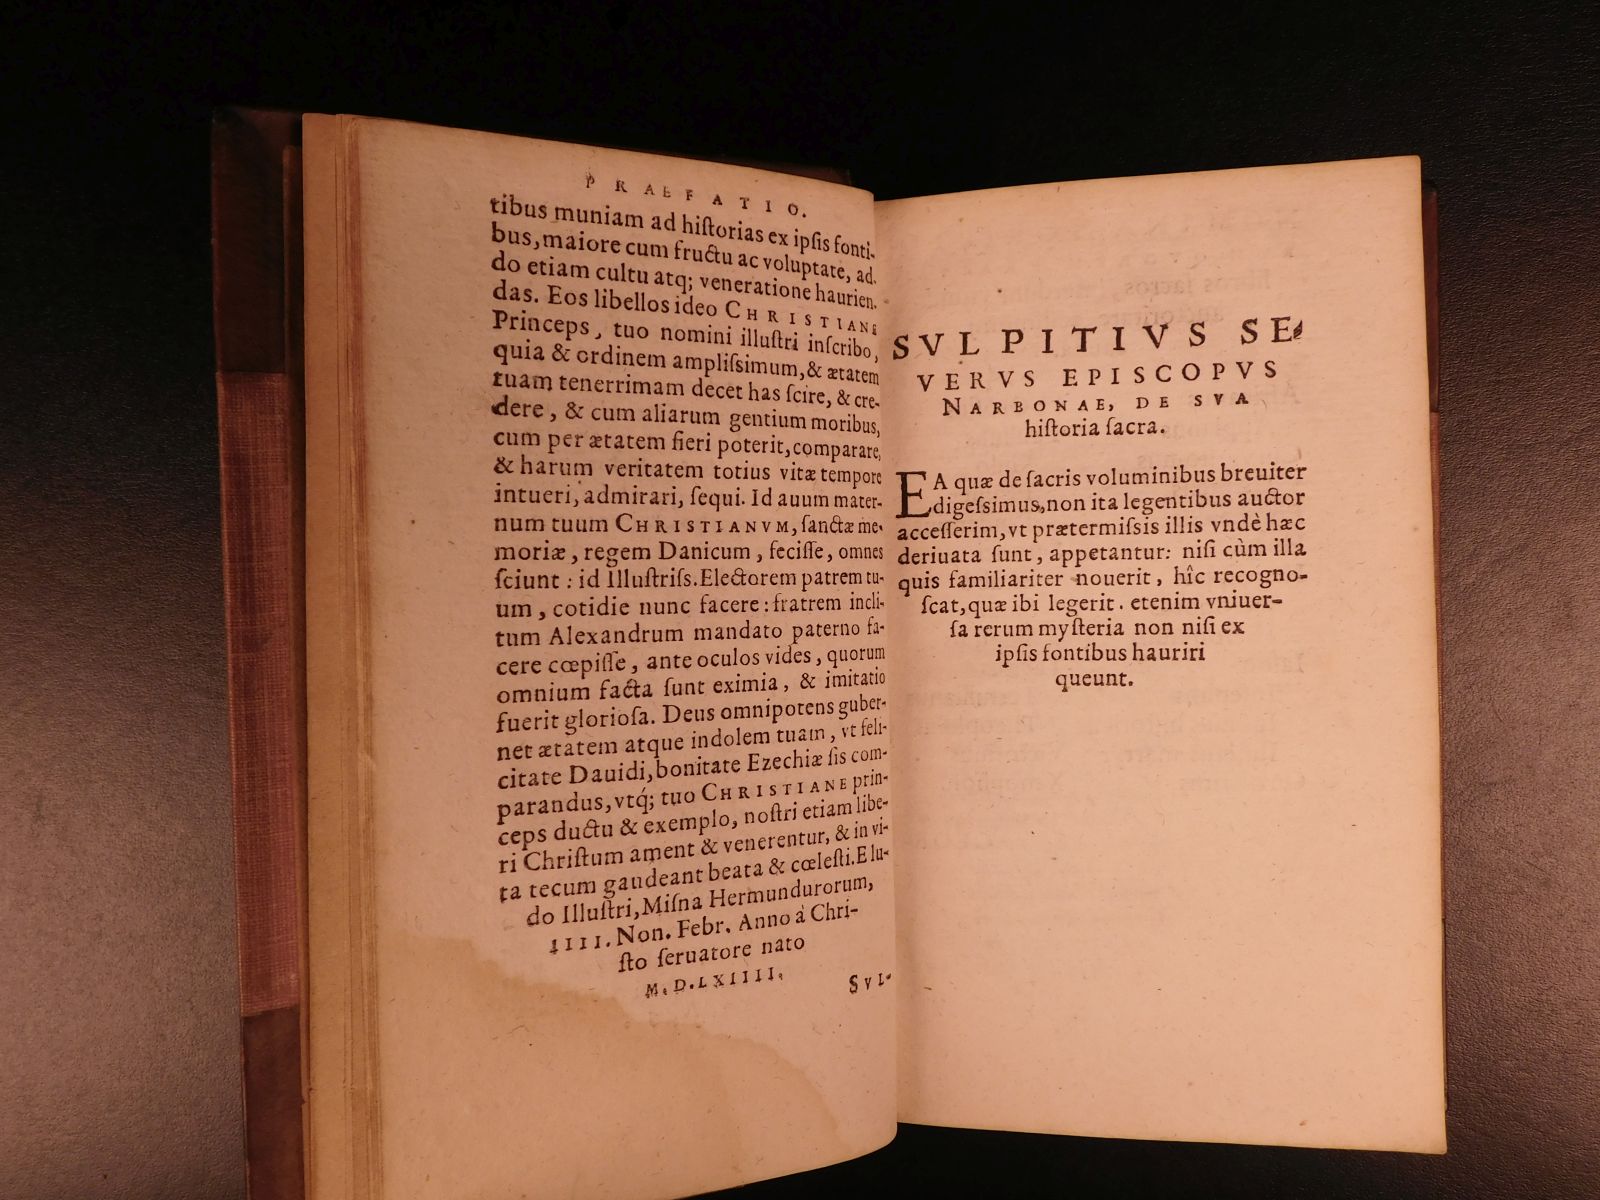 PRAEFATIO.
tibus muniam ad hiſtorias ex ipſis fonti-
bus, maiore cum fructu ac voluptate, ad.
do etiam cultu atq; veneratione haurien.
das. Eos libellos ideo CHRISTIANE
Princeps, tuo nomini illuſtri inſcribo,
quia & ordinem ampliſsimum, & ætatem
tuam tenerrimam decet has ſcire, & cre-
dere, & cum aliarum gentium moribus,
cum per ætatem fieri poterit, comparare,
& harum veritatem totius vitæ tempore
intueri, admirari, ſequi. Id auum mater-
num tuum CHRISTIANVM, ſanctæ me-
moriæ, regem Danicum, feciſſe, omnes
ſciunt: id Illuſtriſs. Electorem patrem tu-
um, cotidie nunc facere: fratrem incli-
tum Alexandrum mandato paterno fa-
cere cœpiſſe, ante oculos vides, quorum
omnium facta ſunt eximia, & imitatio
fuerit glorioſa. Deus omnipotens guber-
net ætatem atque indolem tuam, vt feli-
citate Dauidi, bonitate Ezechiæ ſis com-
parandus, vtq́; tuo CHRISTIANE prin-
ceps ductu & exemplo, noſtri etiam libe-
ri Chriſtum ament & venerentur, & in vi-
ta tecum gaudeant beata & cœleſti. E lu-
do Illuſtri, Miſna Hermundurorum,
IIII. Non. Febr. Anno à Chri-
ſto ſeruatore nato
M.D.LXIIII.
SVL-
SVLPITIVS SE-
VERVS EPISCOPVS
NARBONAE, DE SVA
hiſtoria ſacra.
EA quæ de ſacris voluminibus breuiter
digeſsimus, non ita legentibus auctor
acceſſerim, vt prætermiſsis illis vndè hæc
deriuata ſunt, appetantur: niſi cùm illa
quis familiariter nouerit, hîc recogno-
ſcat, quæ ibi legerit. etenim vniuer-
ſa rerum myſteria non niſi ex
ipſis fontibus hauriri
queunt.